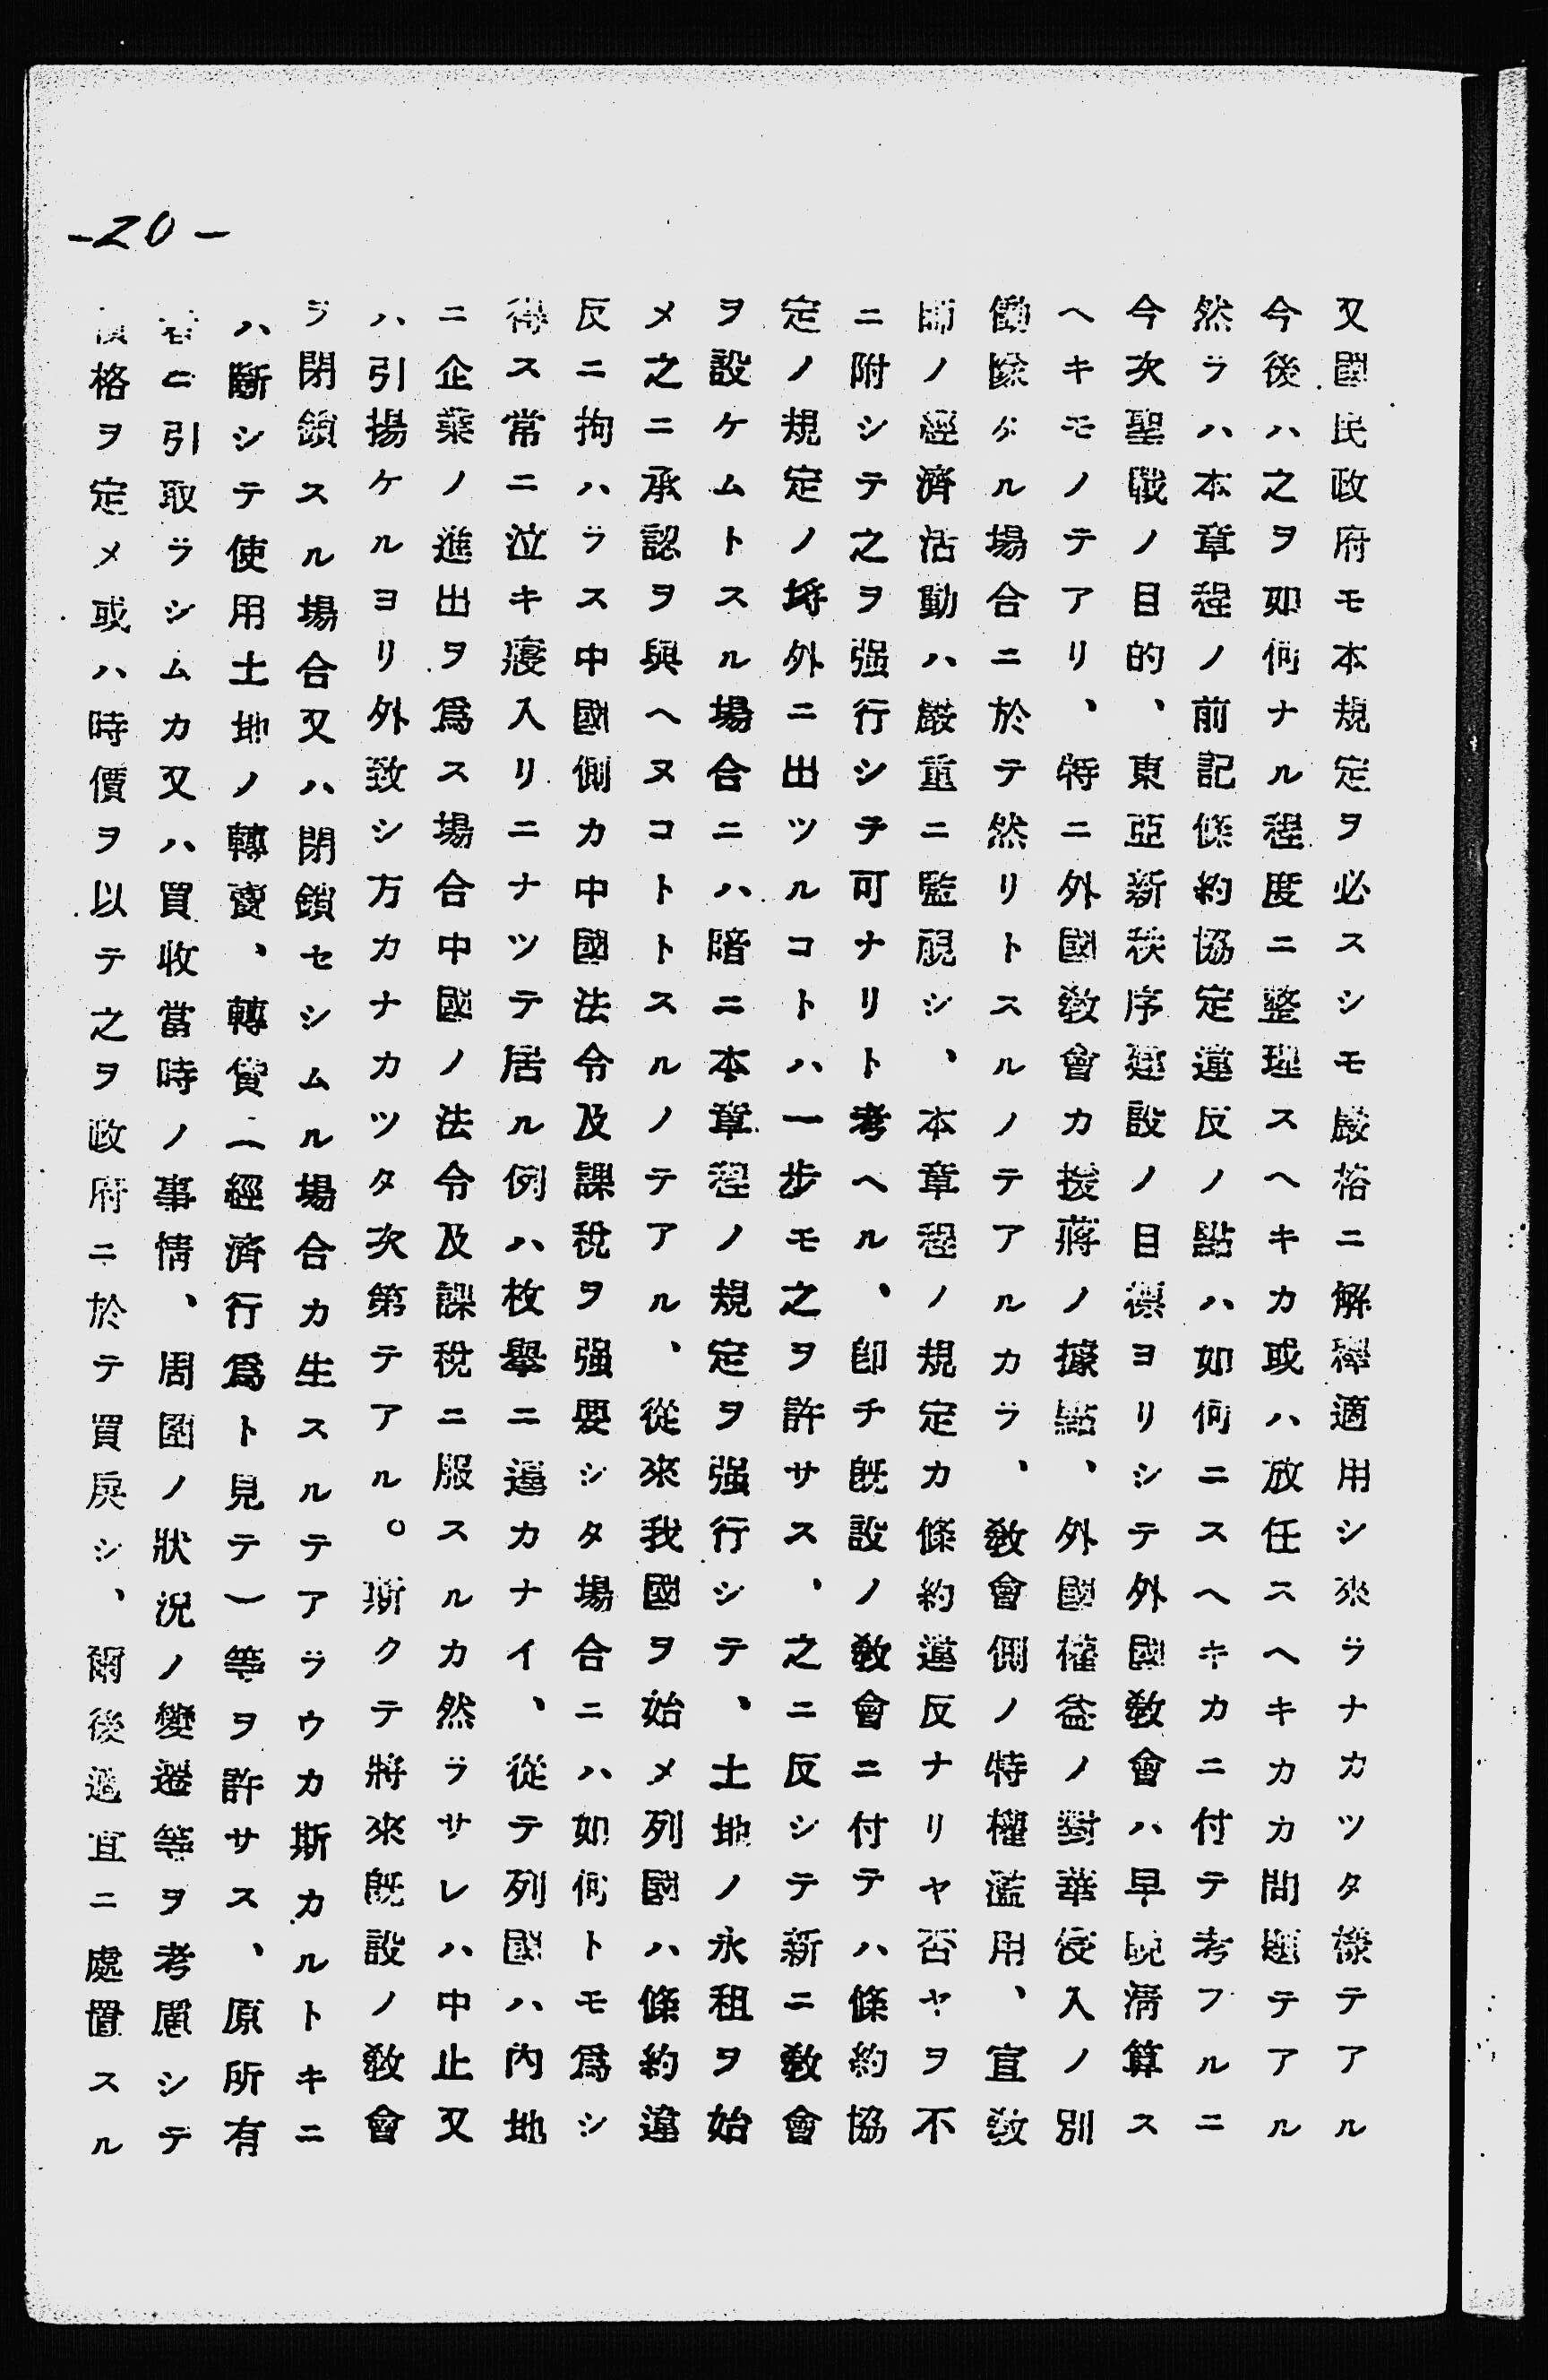 -20-
又國民政府モ本規定ヲ必スシモ嚴格ニ解釋適用シ來ラナカツタ樣テアル
今後ハ之ヲ如何ナル程度ニ整理スヘキカ或ハ放任スヘキカカ問題テアル
然ラハ本章程ノ前記條約協定違反ノ點ハ如何ニスヘキカニ付テ考フルニ
今次聖戰ノ目的、東亞新秩序建設ノ目標ヨリシテ外國敎會ハ早晩淸算ス
ヘキモノテアリ、特ニ外國敎會カ援蔣ノ據點、外國權益ノ對華侵入ノ別
働隊タル場合ニ於テ然リトスルノテアルカラ、敎會側ノ特權濫用、宣敎
師ノ經濟活動ハ嚴重ニ監視シ、本章程ノ規定カ條約違反ナリヤ否ヤヲ不
ニ附シテ之ヲ强行シテ可ナリト考ヘル、卽チ旣設ノ敎會ニ付テハ條約協
定ノ規定ノ埓外ニ出ツルコトハ一步モ之ヲ許サス、之ニ反シテ新ニ敎會
ヲ設ケムトスル場合ニハ暗ニ本章程ノ規定ヲ强行シテ、土地ノ永租ヲ始
メ之ニ承認ヲ與ヘヌコトトスルノテアル、從來我國ヲ始メ列國ハ條約違
反ニ拘ハラス中國側カ中國法令及課稅ヲ强要シタ場合ニハ如何トモ爲シ
得ス常ニ泣キ寢入リニナツテ居ル例ハ枚擧ニ遑カナイ、從テ列國ハ內地
ニ企業ノ進出ヲ爲ス場合中國ノ法令及課稅ニ服スルカ然ラサレハ中止又
ハ引揚ケルヨリ外致シ方カナカツタ次第テアル。斯クテ將來旣設ノ敎會
ヲ閉鎖スル場合又ハ閉鎖セシムル場合カ生スルテアラウカ斯カルトキニ
ハ斷シテ使用土地ノ轉賣、轉貸(經濟行爲ト見テ)等ヲ許サス、原所有
者ニ引取ラシムカ又ハ買收當時ノ事情、周圍ノ狀況ノ變遷等ヲ考慮シテ
價格ヲ定メ或ハ時價ヲ以テ之ヲ政府ニ於テ買戾シ、爾後適宜ニ處置スル